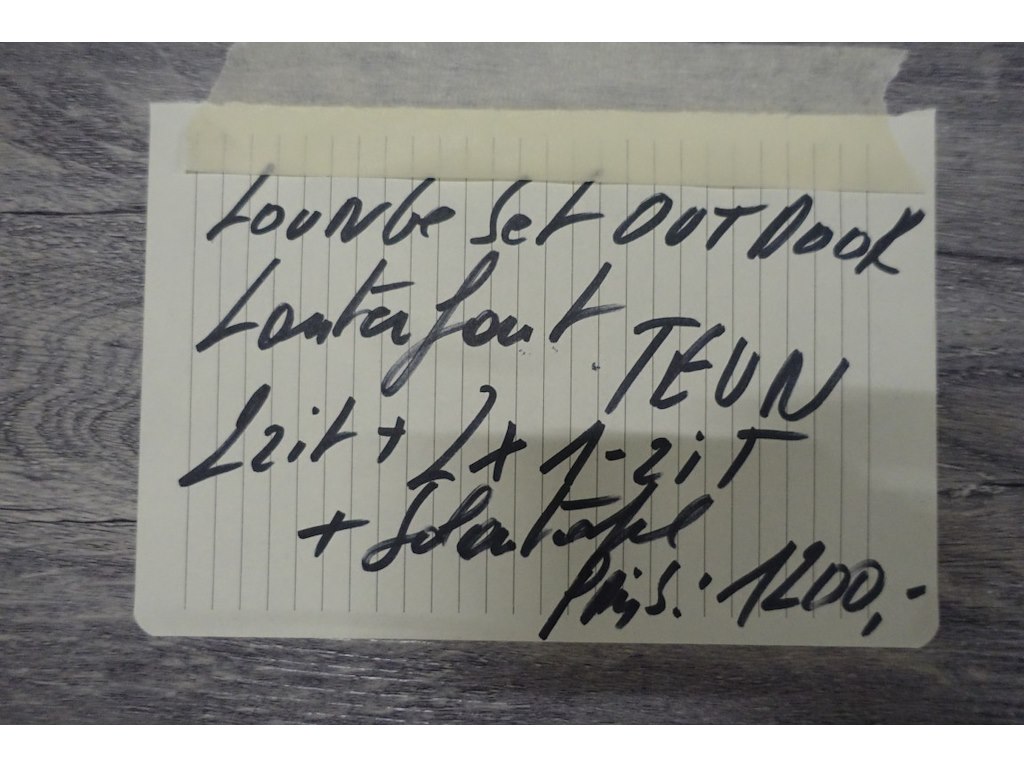 LOUNGE Set OUTDOOR
Lonterfout
TEUN
2zit + 2x 1-ziT
+ Salontafel
Prijs: 1200,-